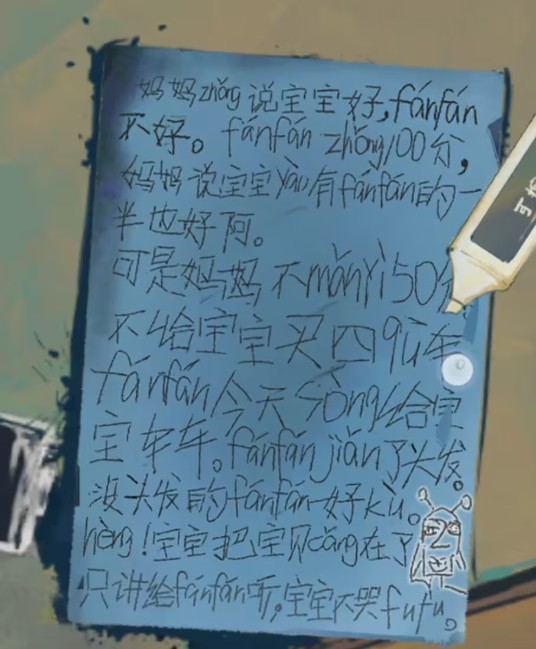 妈妈zhǒng说宝宝好,fánfán
不好。fánfán zhǒng100分,
妈妈说宝宝yǒu有fánfán的一
半也好阿。
可是妈妈不mǎnyì50分
不给宝宝买四qū车
fánfán今天sòng给宝
宝车车。fánfán jiǎn了头发。
没头发的fánfán好kù。
hèng!宝宝把宝贝cáng在了
只讲给fánfán听,宝宝不哭fufu。